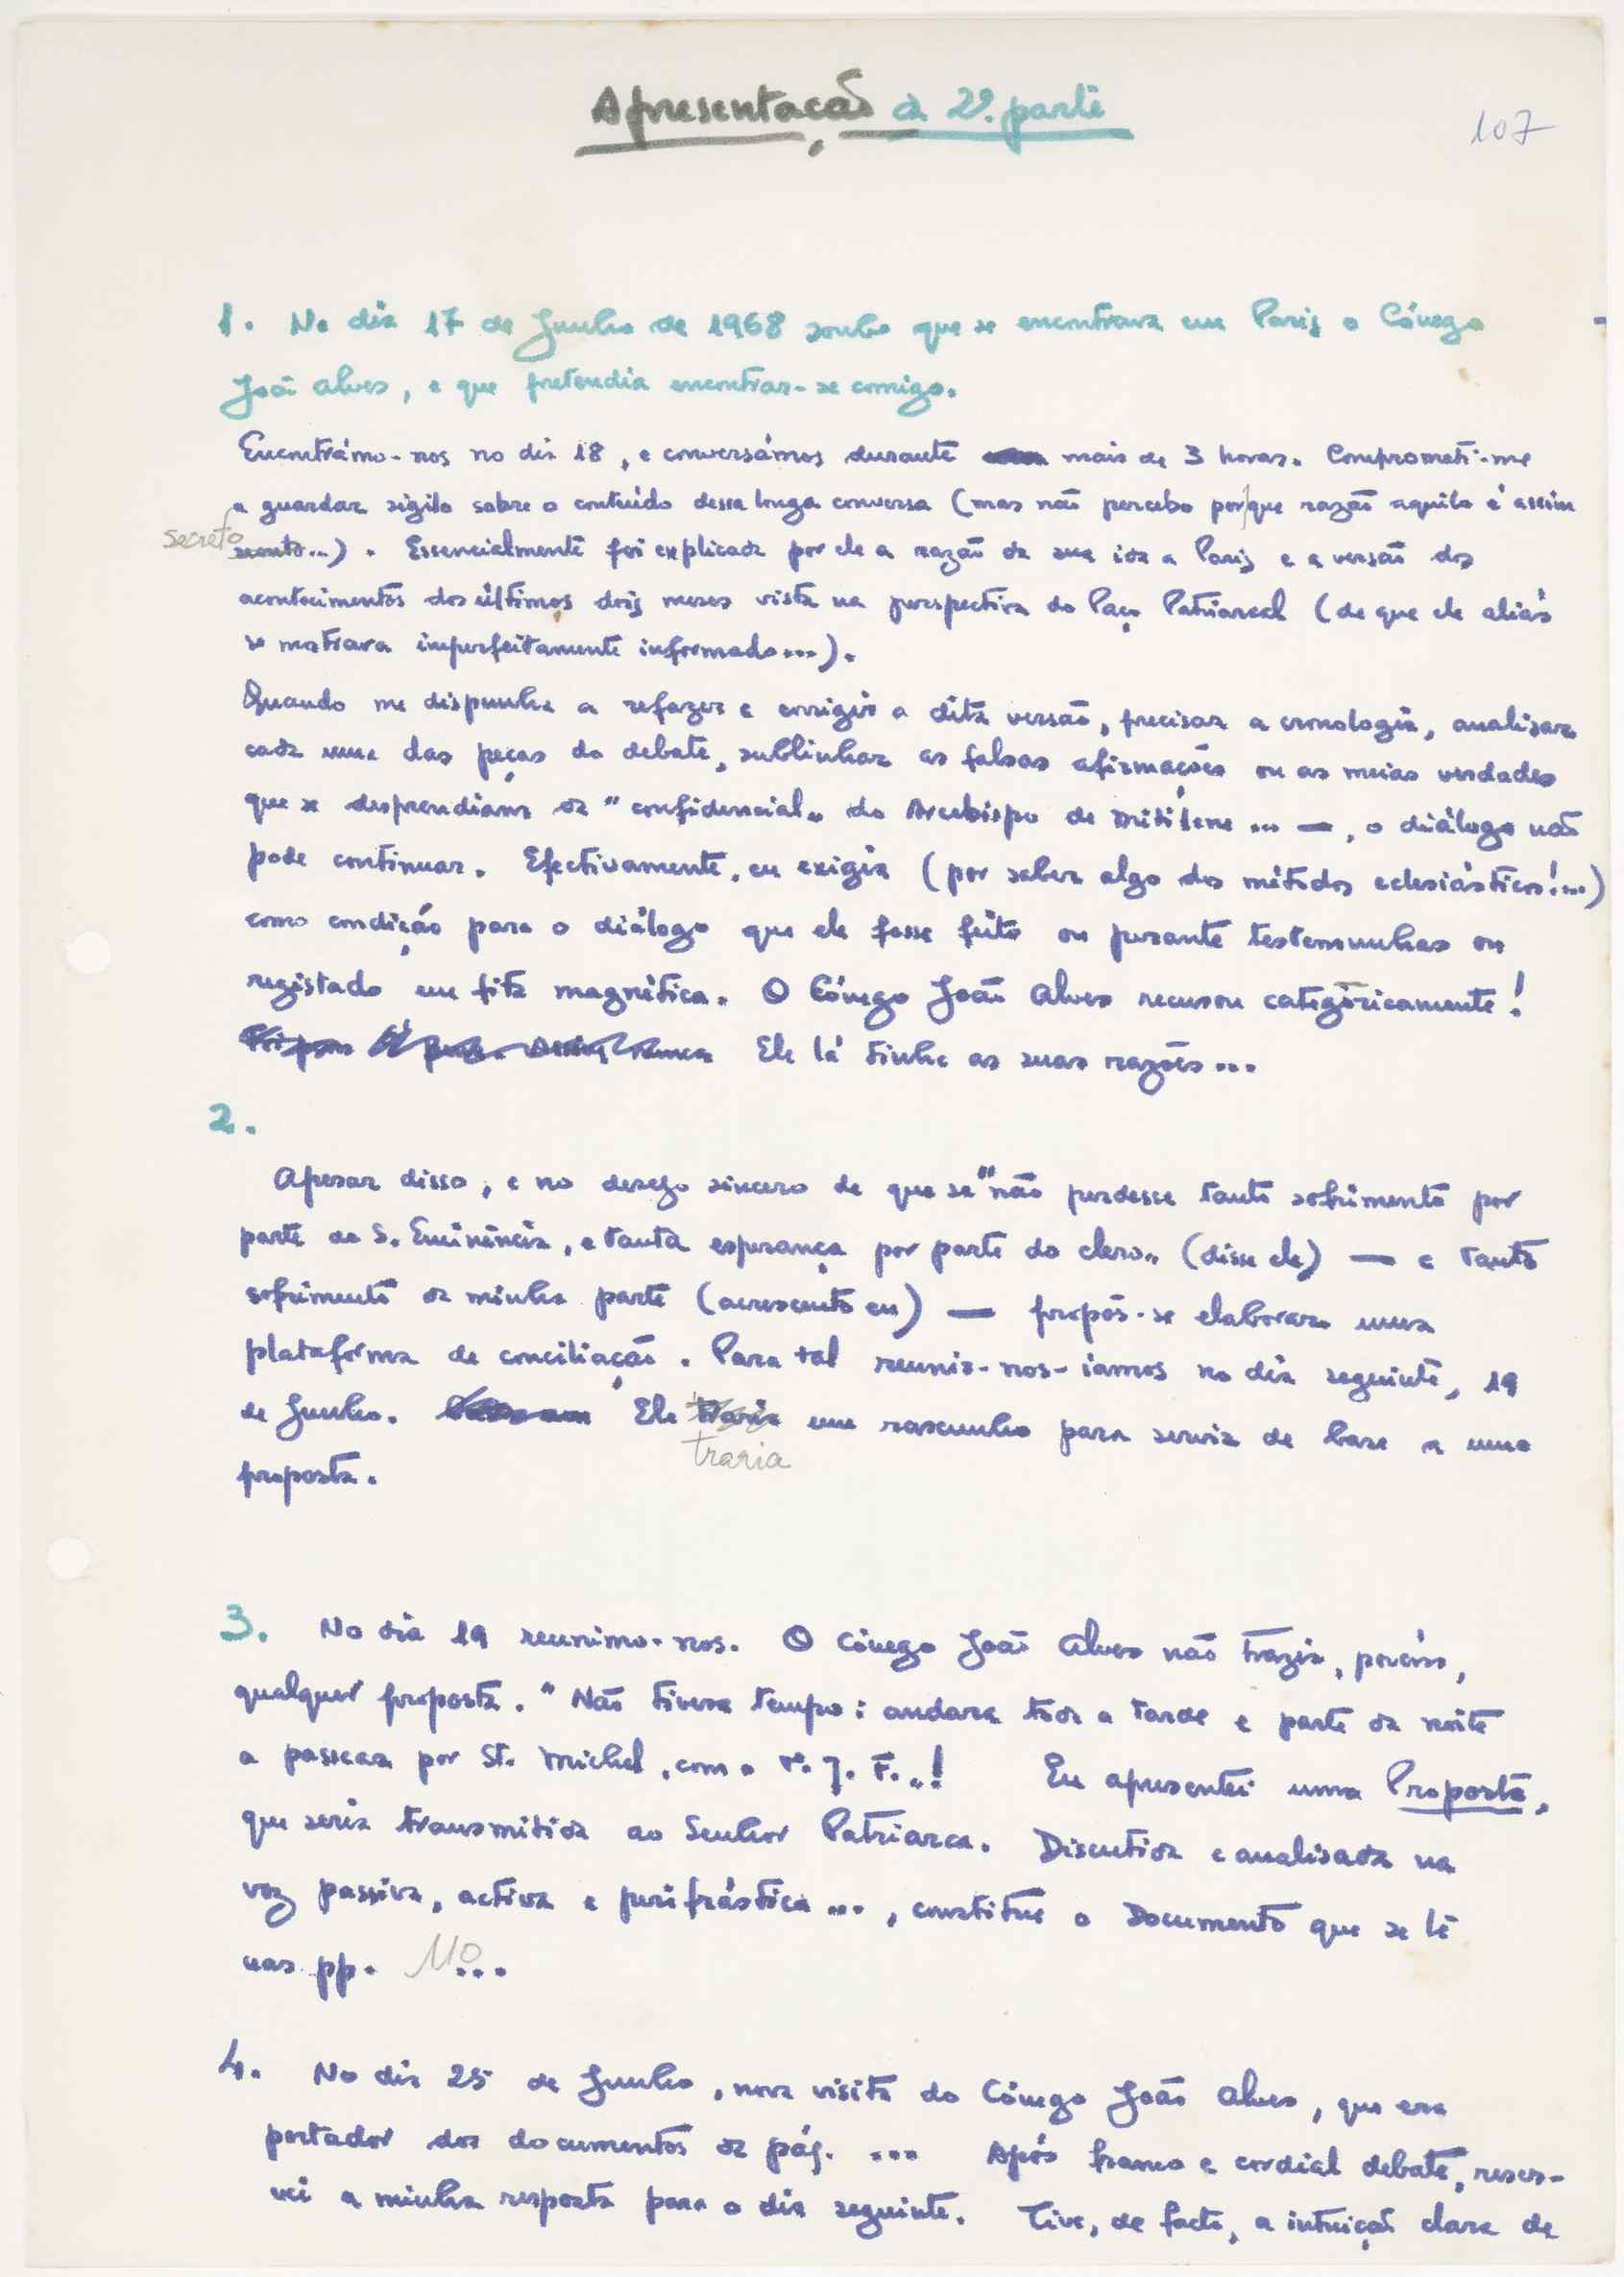 Apresentação da 2ª. parte
107
1. No dia 17 de Junho de 1968 soube que se encontrava em Paris o Cónego
João Alves, e que pretendia encontrar-se comigo.
Encontrámo-nos no dia 18, e conversámos durante mais de 3 horas. Comprometi-me
a guardar sigilo sobre o conteúdo dessa longa conversa (mas não percebo por|que razão aquilo é assim
secreto secreto...). Essencialmente foi explicada por ele a razão da sua ida a Paris e a versão dos
acontecimentos dos últimos dois meses vista na perspectiva do Paço Patriarcal (de que ele aliás
se mostrava imperfeitamente informado...).
Quando me dispunha a refazer e corrigir a dita versão, precisar a cronologia, analisar
cada uma das peças do debate, sublinhar as falsas afirmações ou as meias verdades
que se desprendiam da "confidencial" do Arcebispo de Mitilene ... —, o diálogo não
pode continuar. Efectivamente, eu exigia (por saber algo dos métodos eclesiásticos!...)
como condição para o diálogo que ele fosse feito ou perante testemunhas ou
registado em fita magnética. O Cónego João Alves recusou categòricamente!
Ele lá tinha as suas razões...
2.
Apesar disso, e no desejo sincero de que se "não perdesse tanto sofrimento por
parte de S. Eminência, e tanta esperança por parte do clero" (disse ele) — e tanto
sofrimento da minha parte (acrescento eu) — propôs-se elaborar uma
plataforma de conciliação. Para tal reunir-nos-iamos no dia seguinte, 19
de Junho. Ele traria um rascunho para servir de base a uma
traria
proposta.
3. No dia 19 reunimo-nos. O Cónego João Alves não trazia, porém,
qualquer proposta. "Não tivera tempo: andara toda a tarde e parte da noite
a passear por St. Michel, com o P. J. F."! Eu apresentei uma Proposta,
que seria transmitida ao Senhor Patriarca. Discutida e analisada na
voz passiva, activa e perifrástica..., constitue o Documento que se lê
nas pp. 110...
4. No dia 25 de Junho, nova visita do Cónego João Alves, que era
portador dos documentos da pág. ... Após franco e cordial debate, reser-
vei a minha resposta para o dia seguinte. Tive, de facto, a intuição clara de